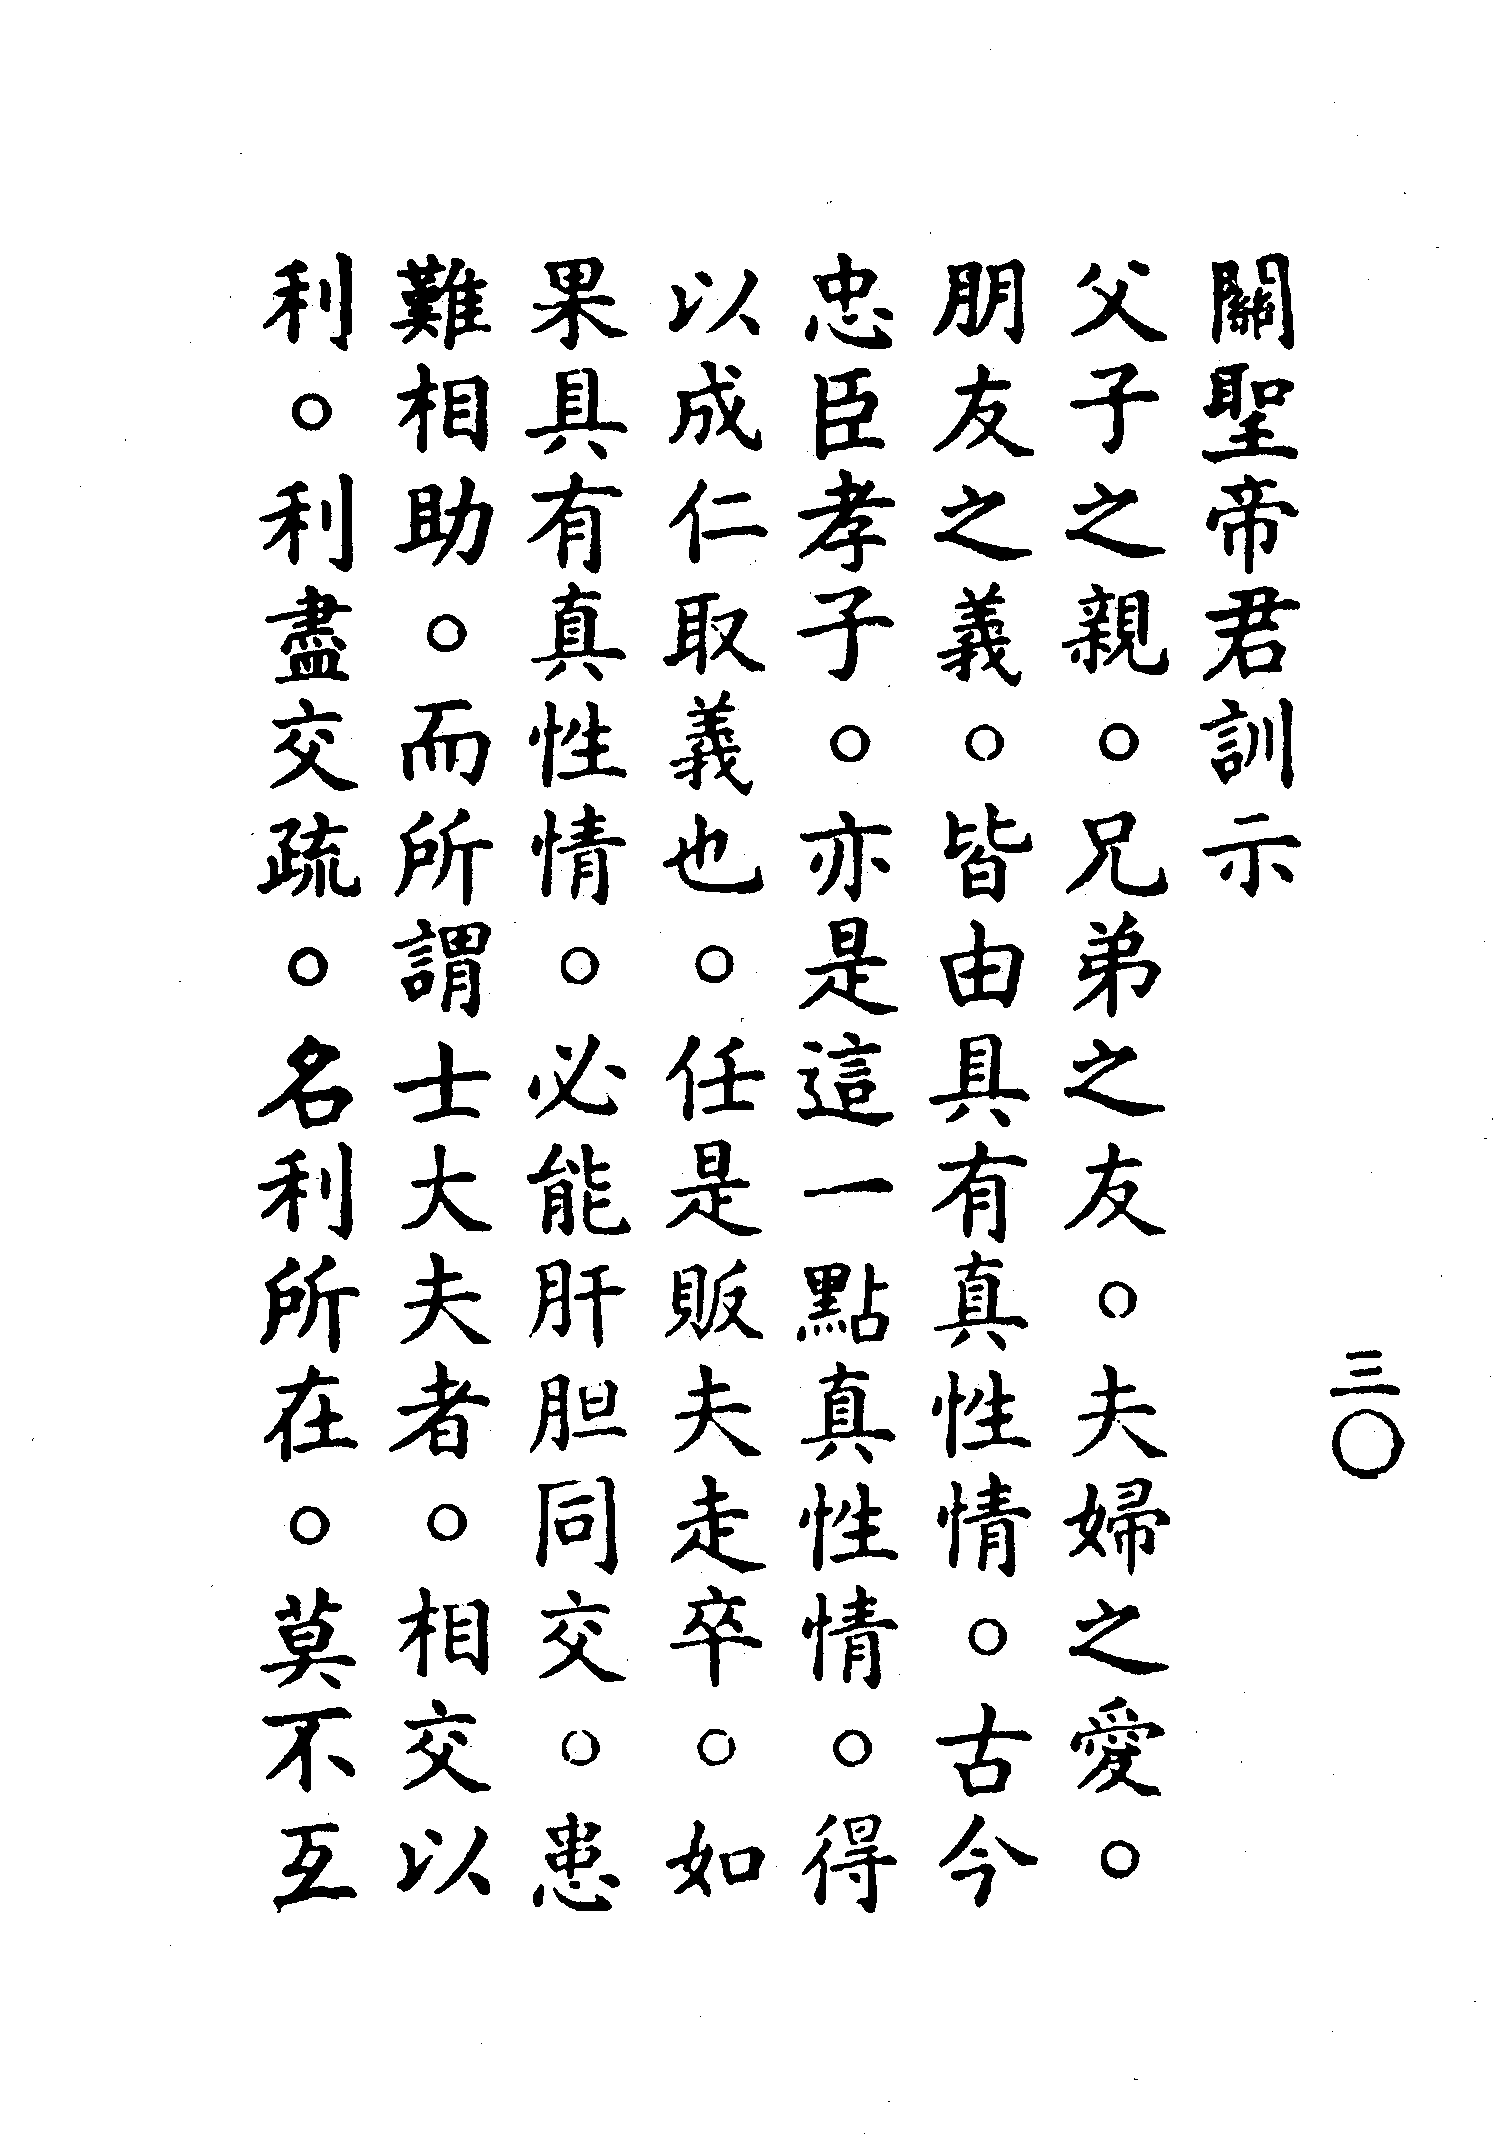 三〇
關聖帝君訓示
父子之親。兄弟之友。夫婦之愛。
朋友之義。皆由具有真性情。古今
忠臣孝子。亦是這一點真性情。得
以成仁取義也。任是販夫走卒。如
果具有真性情。必能肝胆同交。患
難相助。而所謂士大夫者。相交以
利。利盡交疏。名利所在。莫不互